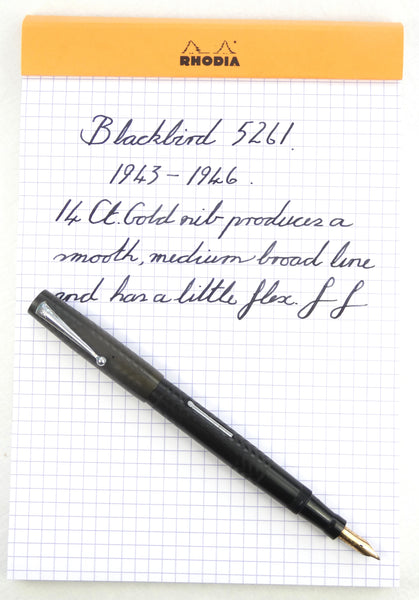 RHODIA
Blackbird 5261.
1943-1946.
14 Ct. Gold nib produces a
smooth, medium broad line
and has a little flex. f f